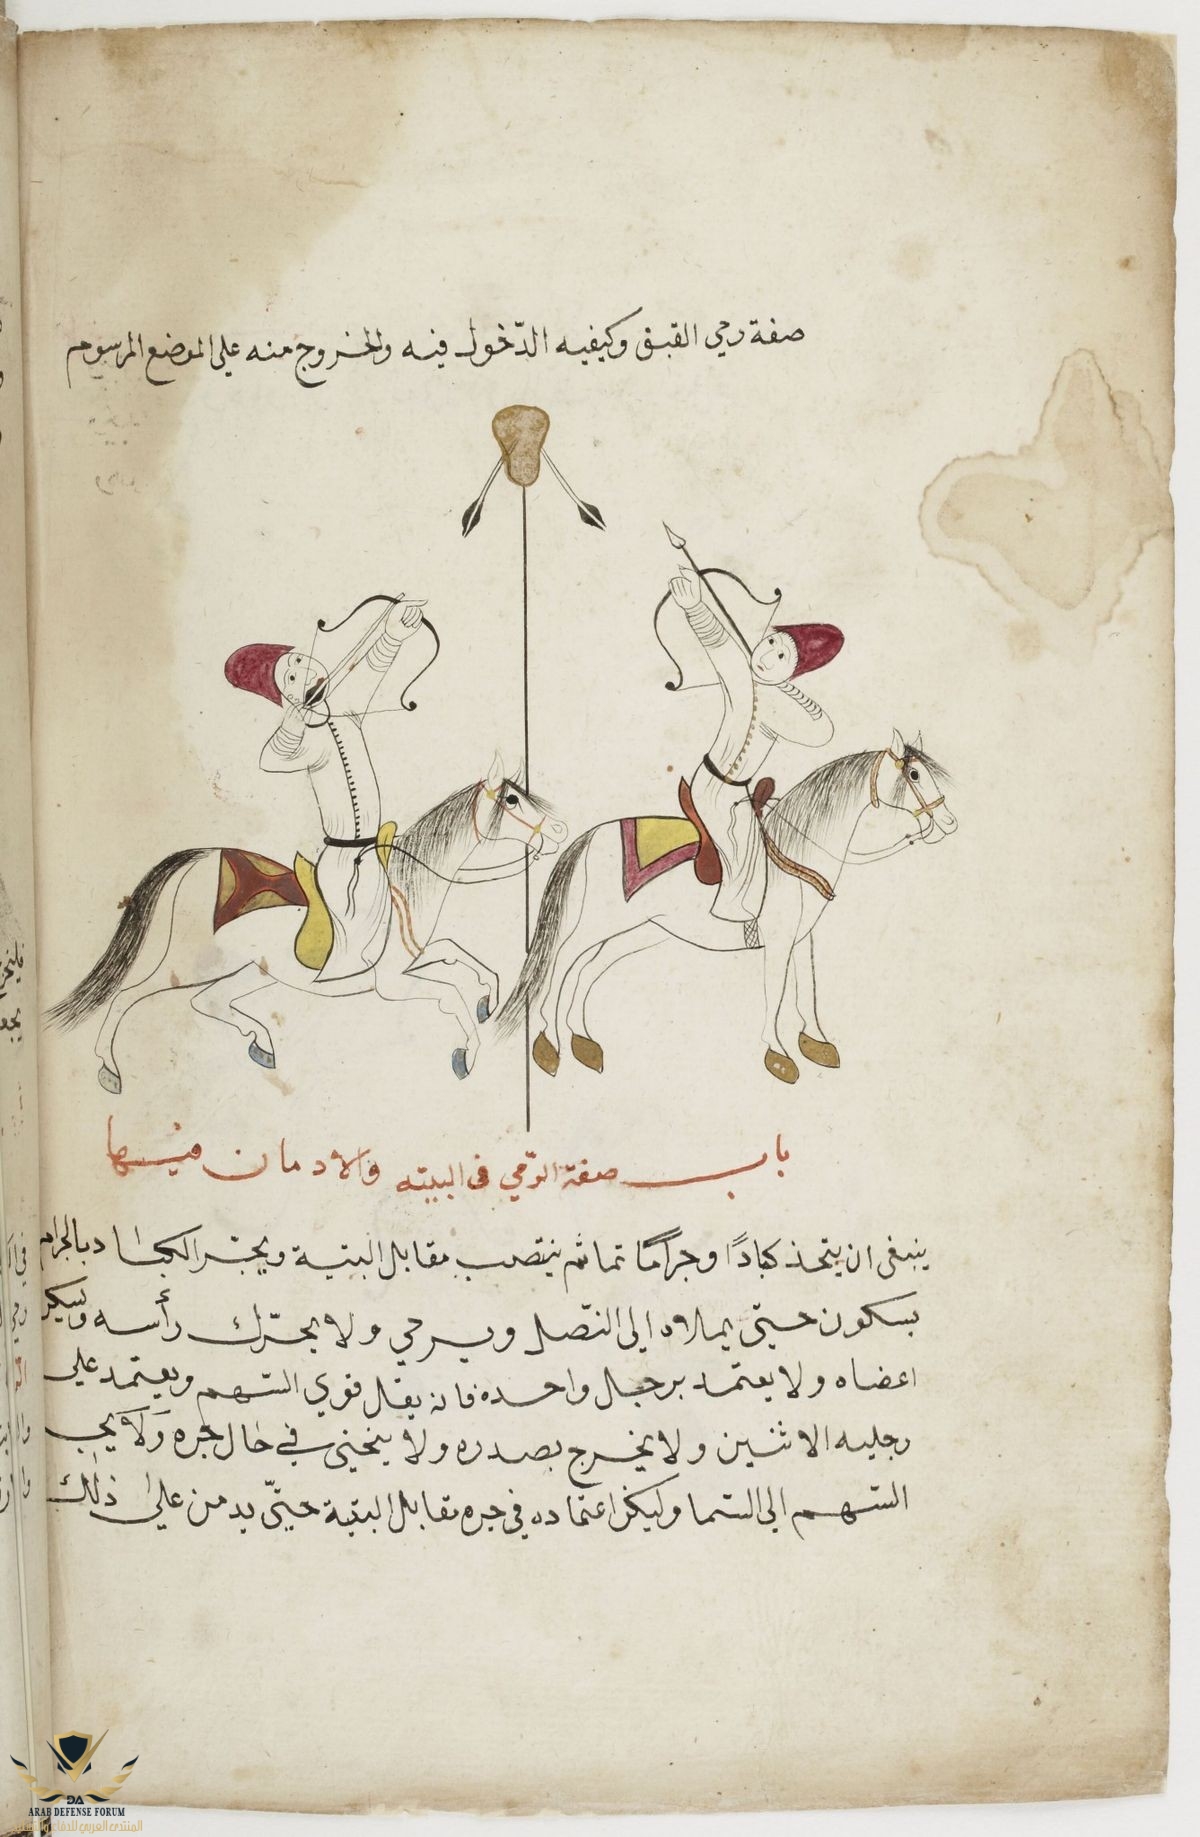 صفة رمي القبق وكيفيه الدّخول فيه والخروج منه علي الموضع المرسوم
باب صفة الرّمي في البيته والادمان فيها
ينبغي ان يتخذ كبادًا وجرامًا تماثم ينتصب مقابل البتية ويجتر الكباد بالجرام
بسكون حتي يملاه الي النّصل ويرمي ولا يحرّك رأسه وسيكن
اعضاه ولا يعتمد برجل واحده فانه يقل قوي السّهم ويعتمد علي
رجليه الاثنين ولا يخرج بصدره ولا ينحني في حال جره ولا
السّهم الي السّما وليكن اعتماده في جره مقابل البتية حتّي يدمن علي ذلك
ARAB DEFENSE FORUM